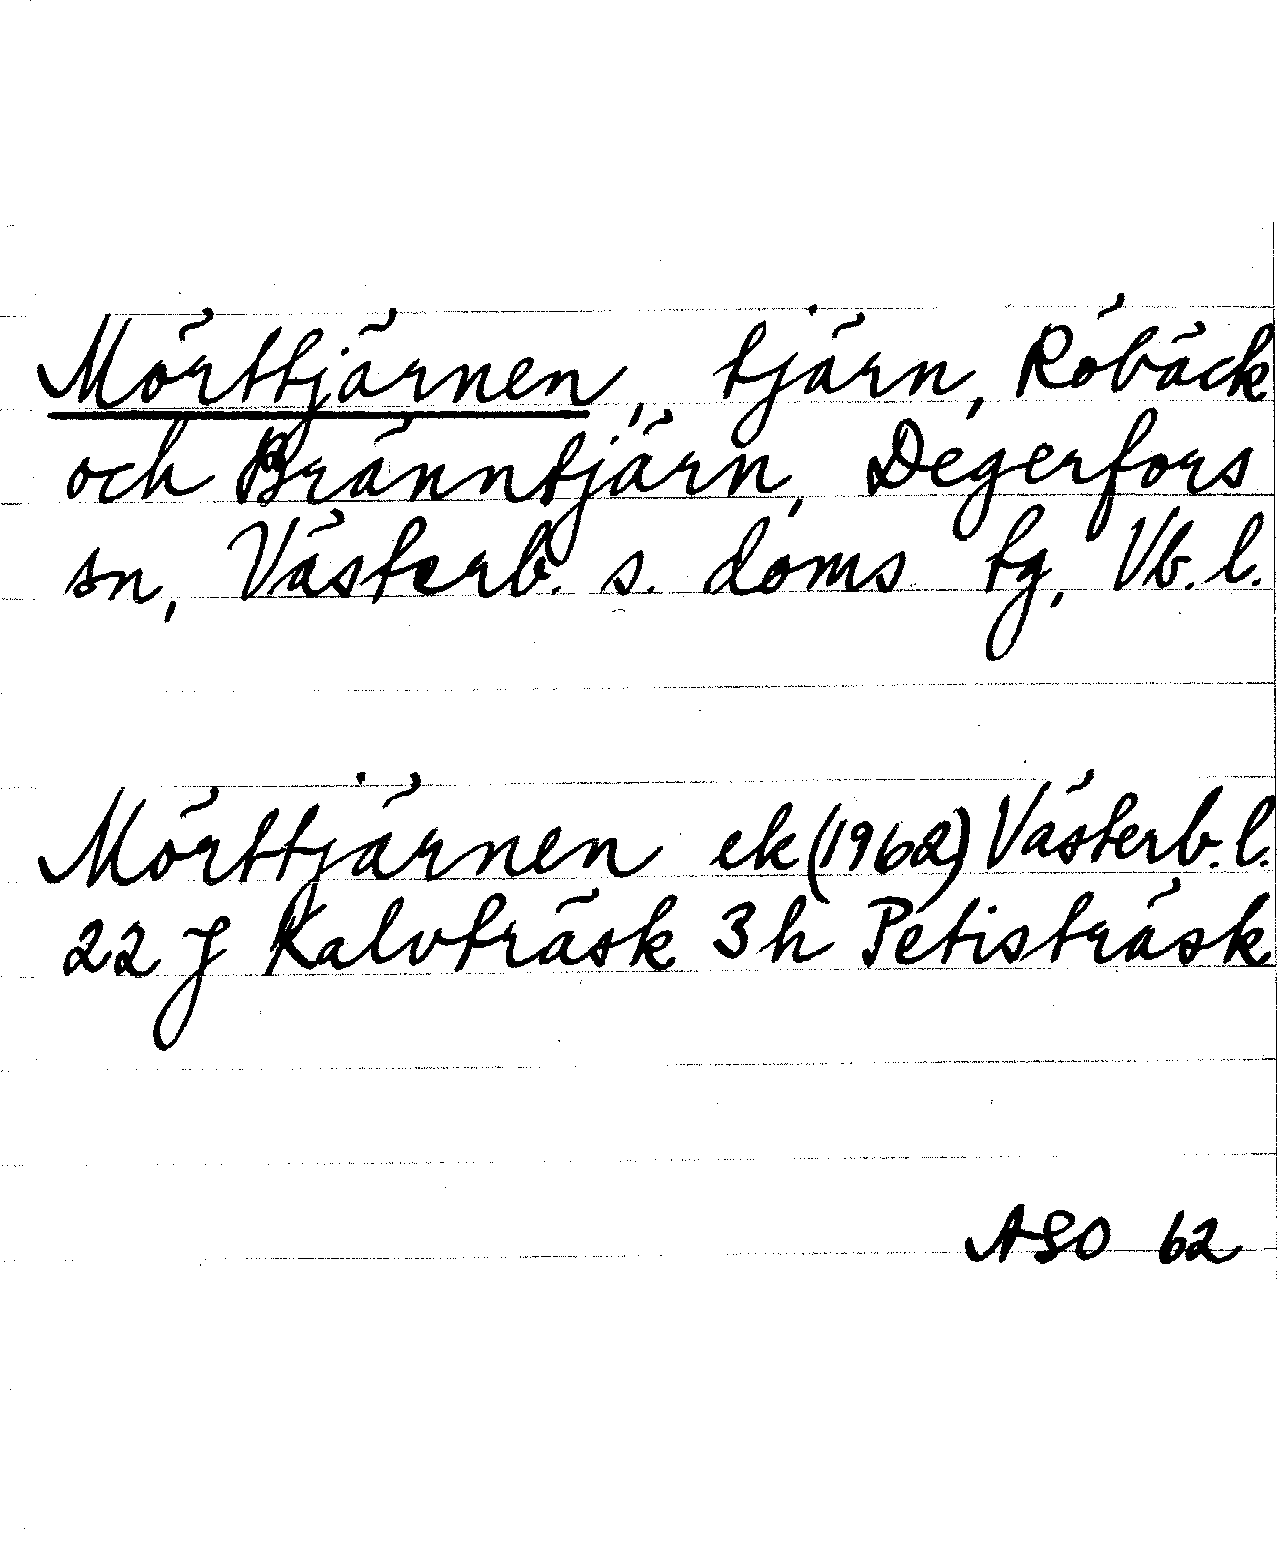 Mörttjärnen, tjärn, Röbäck
och Bränntjärn, Degerfors
sn, Västerb. s. doms tg, Vb. l.
Mörttjärnen ek (1962) Västerb. l.
22 J Kalvträsk 3 h Petisträsk
ASO 62